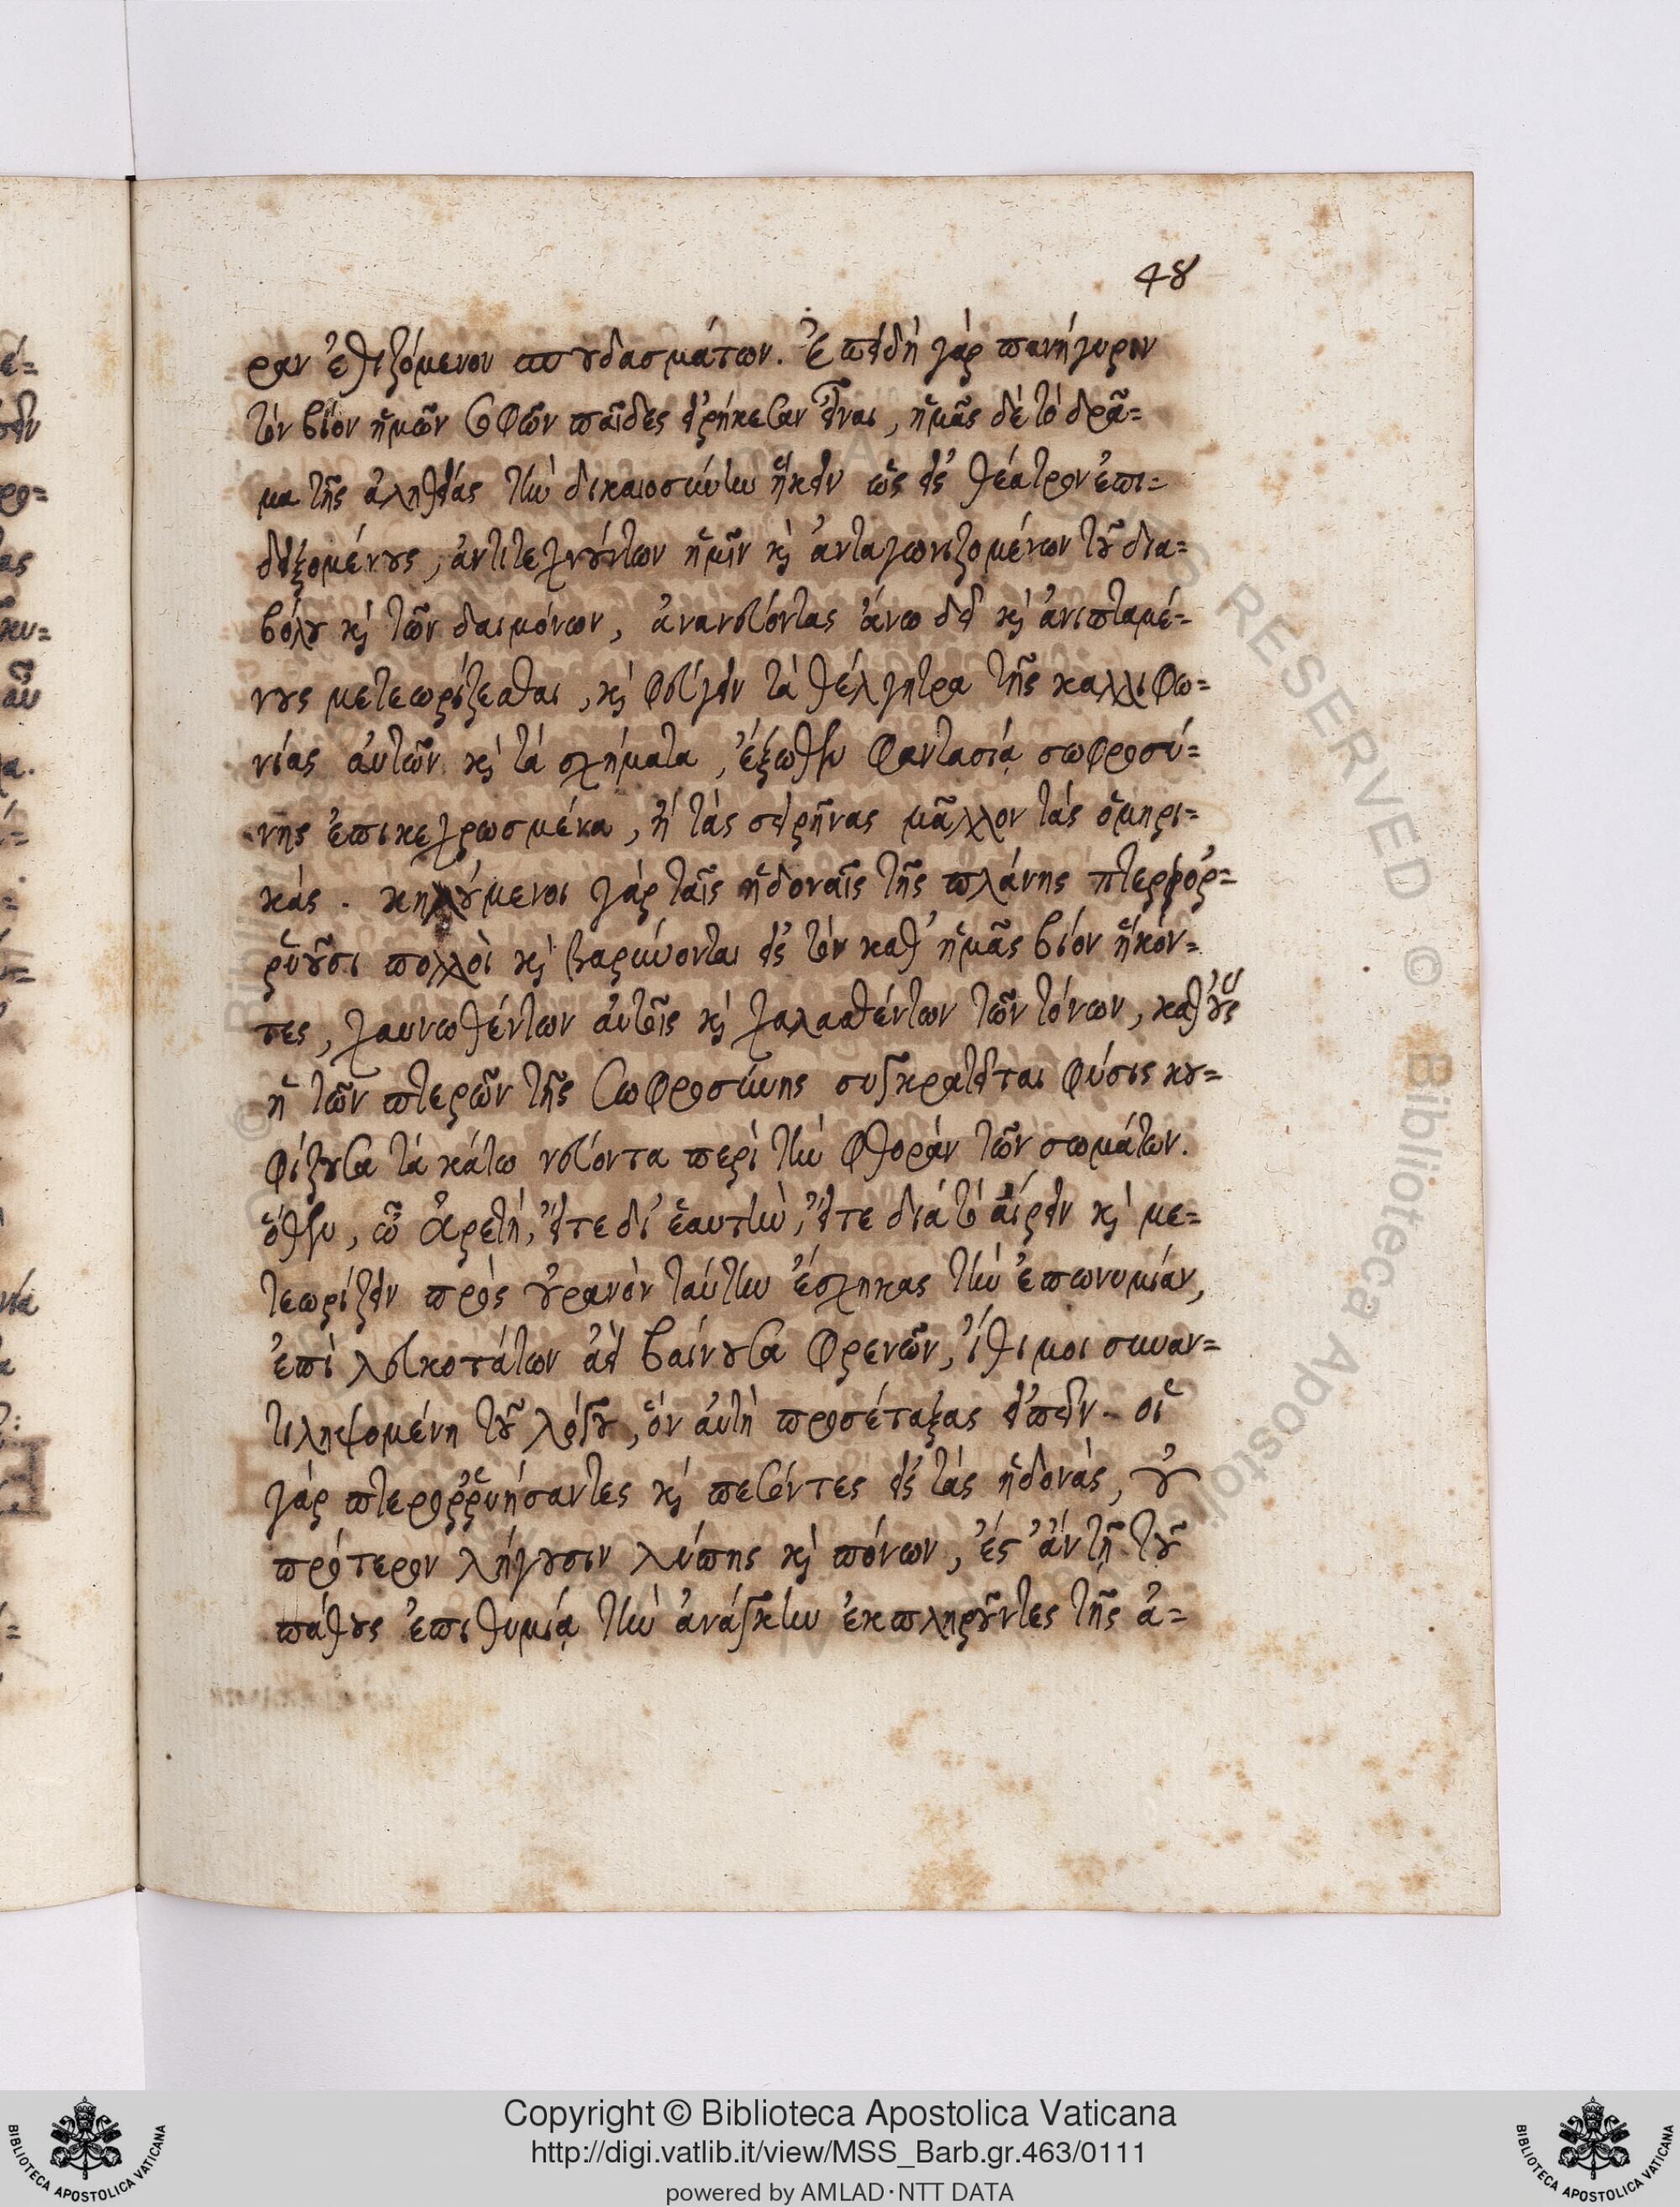 48
ραν ἐθιζόμενον σπουδασμάτων. Ἐπειδὴ γάρ πανήγυριν
τὸν βίον ἡμῶν σοφῶν παῖδες εἰρήκεσαν εἶναι, ἡμᾶς δὲ τὸ δρᾶ=
μα τῆς ἀληθείας τὴν δικαιοσύνην ἥκειν ὡς εἰς θέατρον ἐπι=
δειξομένους, ἀντιτεχνούντων ἡμῖν καὶ ἀνταγωνιζομένων τοῦ δια=
βόλου καὶ τῶν δαιμόνων, ἀνανεύοντας ἄνω δεῖ καὶ ἀνιπταμέ=
νους μετεωρίζεσθαι, καὶ φεύγειν τὰ θέλγητρα τῆς καλλιφω=
νίας αὐτῶν καὶ τὰ σχήματα, ἔξωθεν φαντασίᾳ σωφροσύ=
νης ἐπικεχρωσμένα, ἢ τὰς σειρῆνας μᾶλλον τὰς ὁμηρι=
κάς. κηλούμενοι γὰρ ταῖς ἡδοναῖς τῆς πλάνης πτεροῤ=
ῥυοῦσι πολλοὶ καὶ βαρύνονται εἰς τὸν καθ' ἡμᾶς βίον ἥκον=
τες, χαυνωθέντων αὐτοῖς καὶ χαλασθέντων τῶν τόνων, καθ' οὓς
ἡ τῶν πτερῶν τῆς σωφροσύνης συγκρατεῖται φύσις κου=
φίζουσα τὰ κάτω νεύοντα περὶ τὴν φθορὰν τῶν σωμάτων.
ὅθεν, ὦ Ἀρετή, εἴτε δι' ἑαυτὴν, εἴτε διὰ τὸ αἴρειν καὶ με=
τεωρίζειν πρὸς οὐρανὸν ταύτην ἔσχηκας τὴν ἐπωνυμίαν,
ἐπὶ λευκοτάτων ἀεὶ βαίνουσα φρενῶν, ἴθι μοι συναν=
τιληψομένη τοῦ λόγου, ὃν αὐτὴ προσέταξας εἰπεῖν. οἱ
γὰρ πτεροῤῥυήσαντες καὶ πεσόντες εἰς τὰς ἡδονάς, οὐ
πρότερον λήγουσιν λύπης καὶ πόνων, ἔς τ' ἂν τῇ τοῦ
πάθους ἐπιθυμίᾳ τὴν ἀνάγκην ἐκπληροῦντες τῆς ἀ=
Copyright © Biblioteca Apostolica Vaticana
http://digi.vatlib.it/view/MSS_Barb.gr.463/0111
powered by AMLAD·NTT DATA
BIBLIOTECA APOSTOLICA VATICANA
BIBLIOTECA APOSTOLICA VATICANA